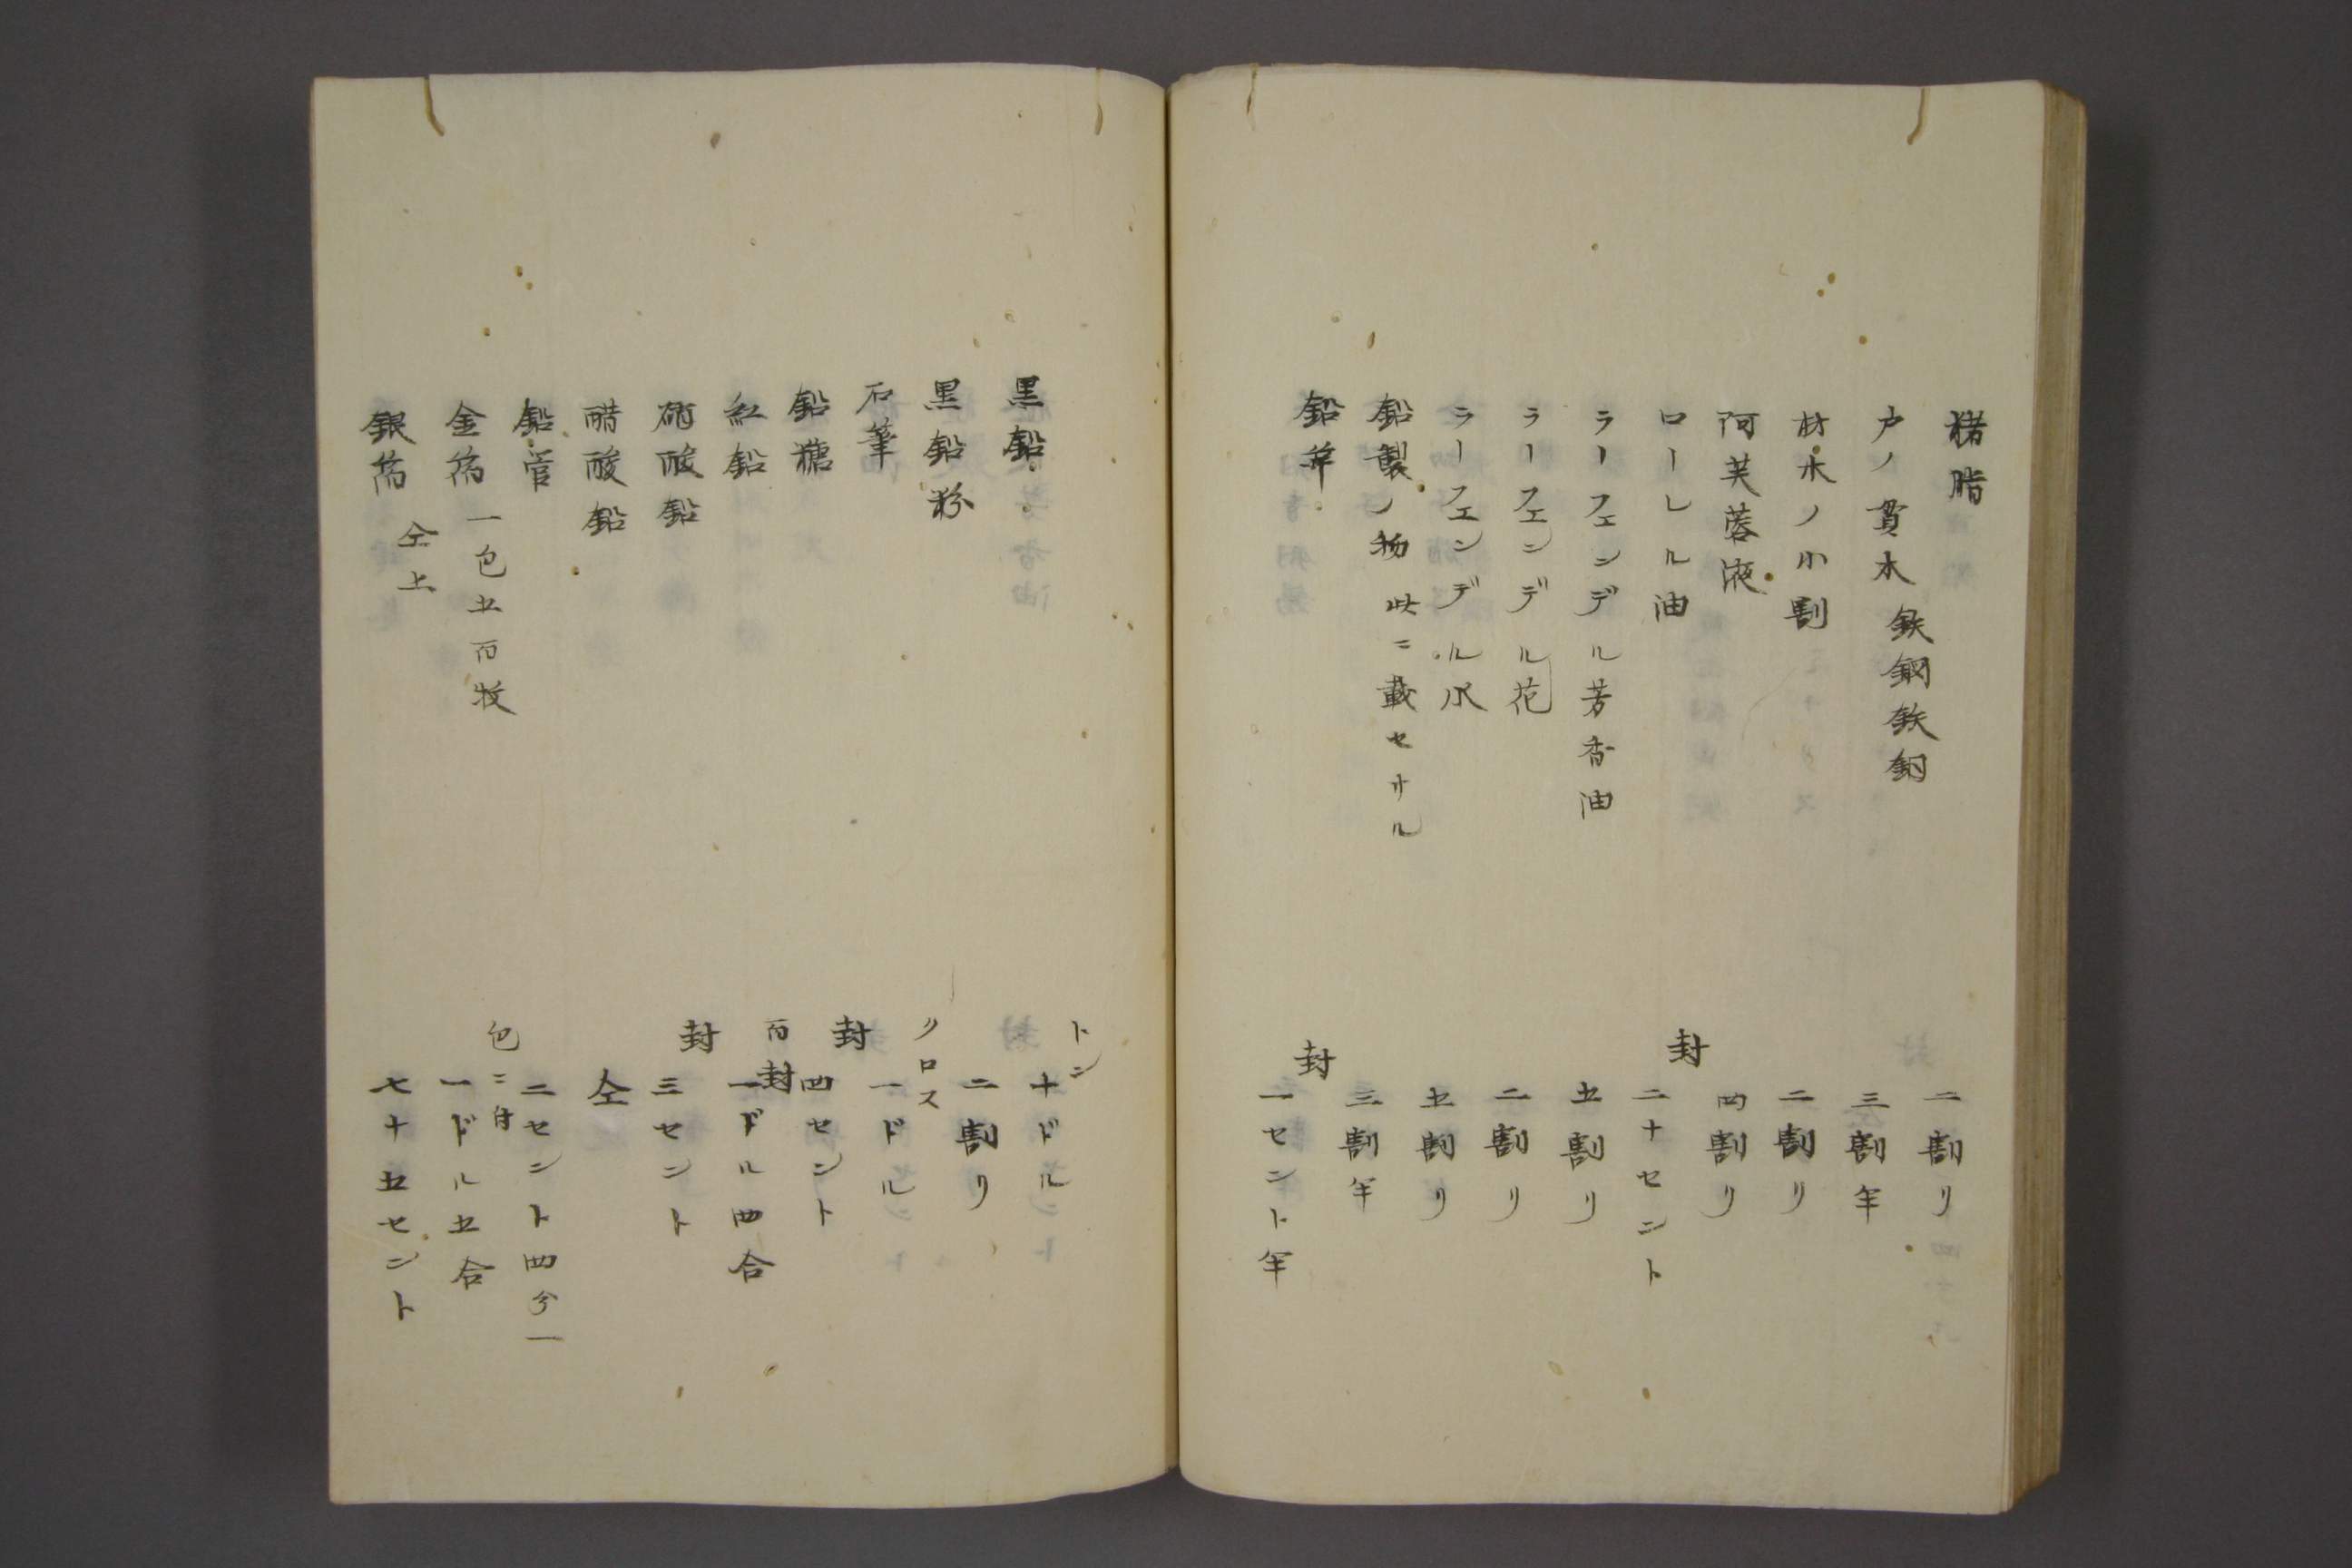 猪脂　二割リ
戸ノ貫木　鉄鋼鉄釖　三割半
材木ノ小割　二割リ
阿芙蓉液　四割リ
ローレル油　封　二十セント
ラーフェンデル芳香油　五割リ
ラーフェンデル花　二割リ
ラーフェンデル水　五割リ
鉛製ノ物　此ニ載セサル　三割半
鉛　封　一セント半
黒鉛　トン　十ドル
黒鉛粉　二割リ
石筆　クロス　一ドル
鉛糖　封　四セント
紅鉛　百封　一ドル四合
硝酸鉛　封　三セント
醋酸鉛　仝
鉛管　二セント四分一
金箔　一包五百枚　包ニ付　一ドル五合
銀箔　仝上　七十五セント